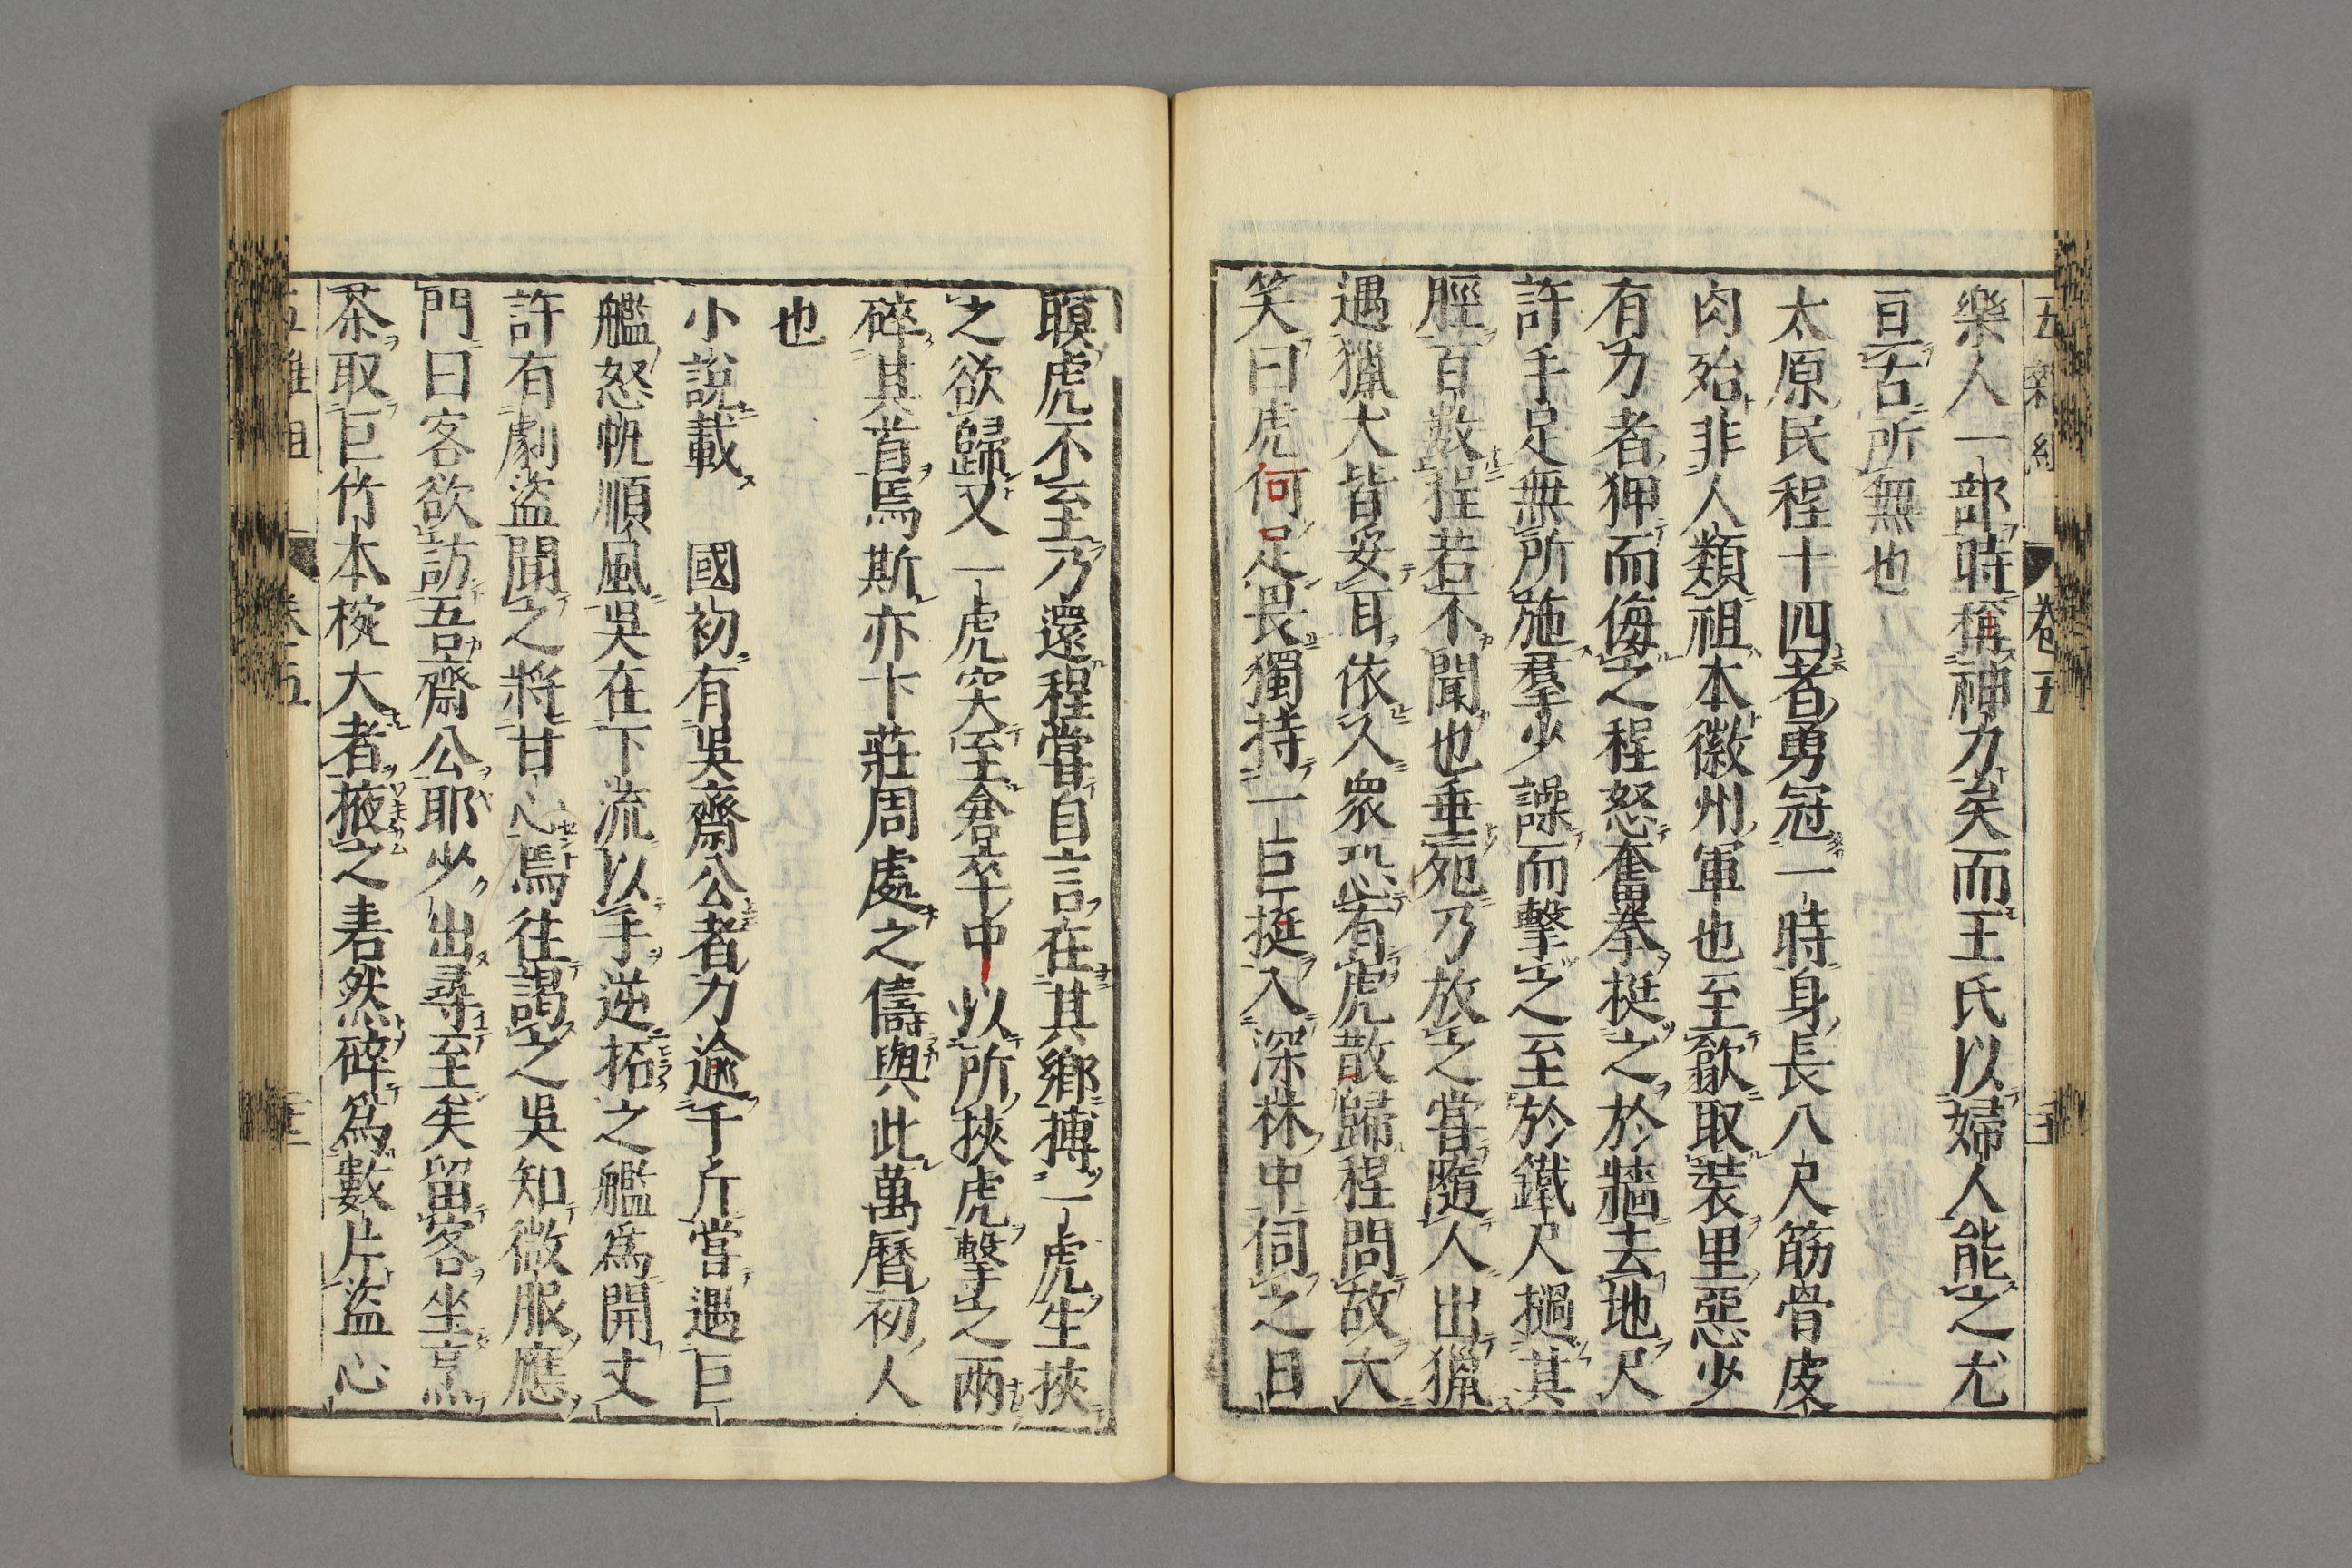 五雜組 卷五
樂人一部時稱神力矣而王氏以婦人能之尤
亘古所無也
太原民程十四者勇冠一時身長八尺筋骨皮
肉殆非人類祖本徽州軍也至歙取裝里惡少
有力者狎而侮之程怒奮拳挺之於牆去地尺
許手足無所施羣少譟而擊之至於鐵尺撾其
脛百數程若不聞也垂死乃放之嘗隨人出獵
遇獵犬皆妥耳依人衆恐有虎散歸程問故大
笑曰虎何足畏獨持一巨挺入深林中伺之日
暝虎不至乃還程嘗自言在其鄉搏一虎生挾
之欲歸又一虎突至倉卒中以所挾虎擊之兩
碎其首焉斯亦卞莊周處之儔與此萬曆初人
也
小說載 國初有吳齋公者力逾千斤嘗遇巨
艦怒帆順風吳在下流以手逆拓之艦爲開丈
許有劇盜聞之將甘心焉往謁之吳知微服應
門曰客欲訪吾齋公耶少出尋至矣留客坐烹
茶取巨竹本椀大者掖之砉然碎爲數片盜心
五雜組 卷五